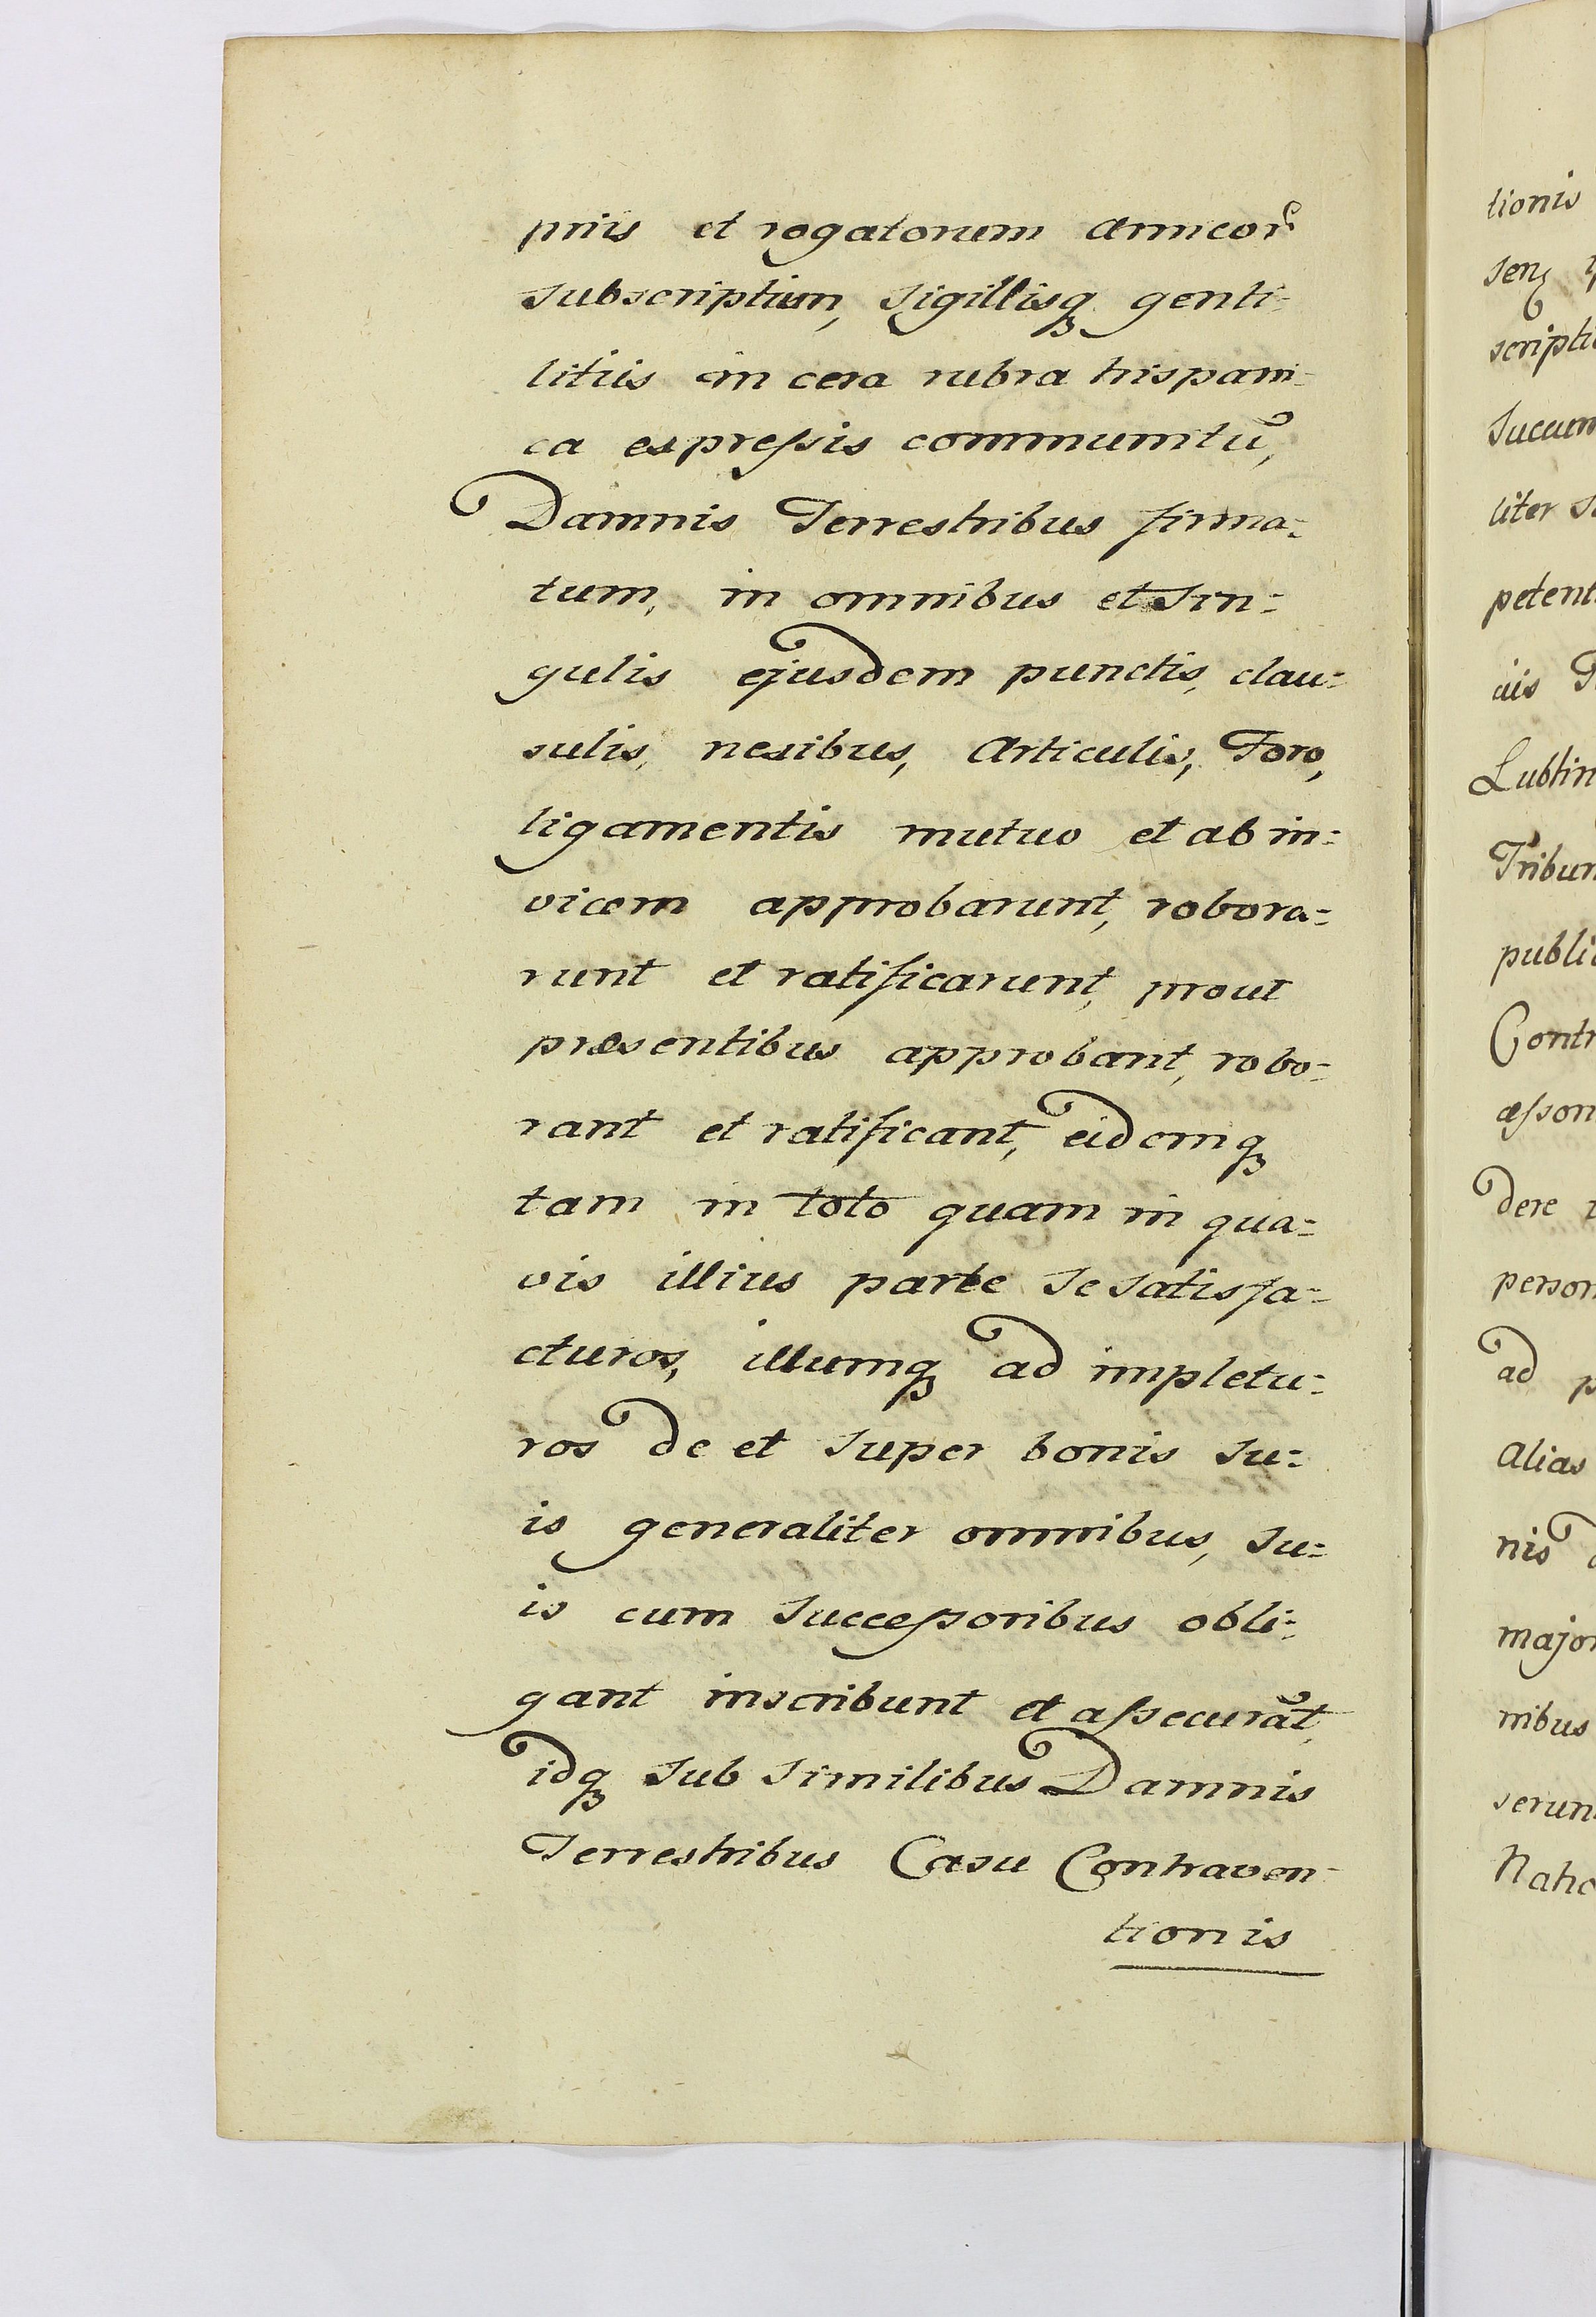 priis et rogatorum Amicor̃
subscriptum, sigillisq̨ genti-
litiis in cera rubra hispani-
ca expressis communitũ,
Damnis Terrestribus firma-
tum, in omnibus et sin-
gulis ejusdem punctis, clau-
sulis, nexibus, Articulis, Foro,
ligamentis mutuo et ab in-
vicem approbarunt, robora-
runt et ratificarunt, prout
præsentibus approbant, robo-
rant et ratificant, eidemq̨
tam in toto quam in qua-
vis illius parte se satisfa-
cturos, illumq̨ ad impletu-
ros de et super bonis su-
is generaliter omnibus, su-
is cum successoribus obli-
gant inscribunt et assecurãt,
idq̨ sub similibus Damnis
Terrestribus Casu Contraven-
tionis
tionis
scriptio
Succum
liter
petent
uis
Lublin
Tribun
public
Contr
asson
dere
person
ad
Alias
nis
major
nibus
serun
Natio